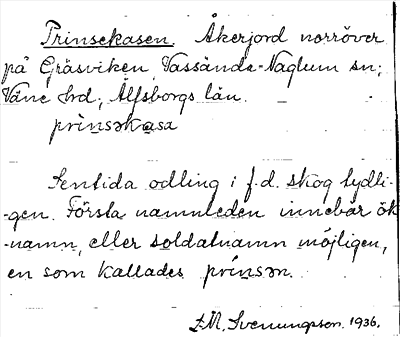 Prinsekasen. Åkerjord norröver
på Gräsviken, Vassända-Naglum sn;
Väne hrd; Älfsborgs län.
prìnsəkasa
Sentida odling i f.d. skog tydli-
-gen. Första namnleden innebär ök
-namn, eller soldatnamn möjligen,
en som kallades prínsən.
Svenungson. 1936.